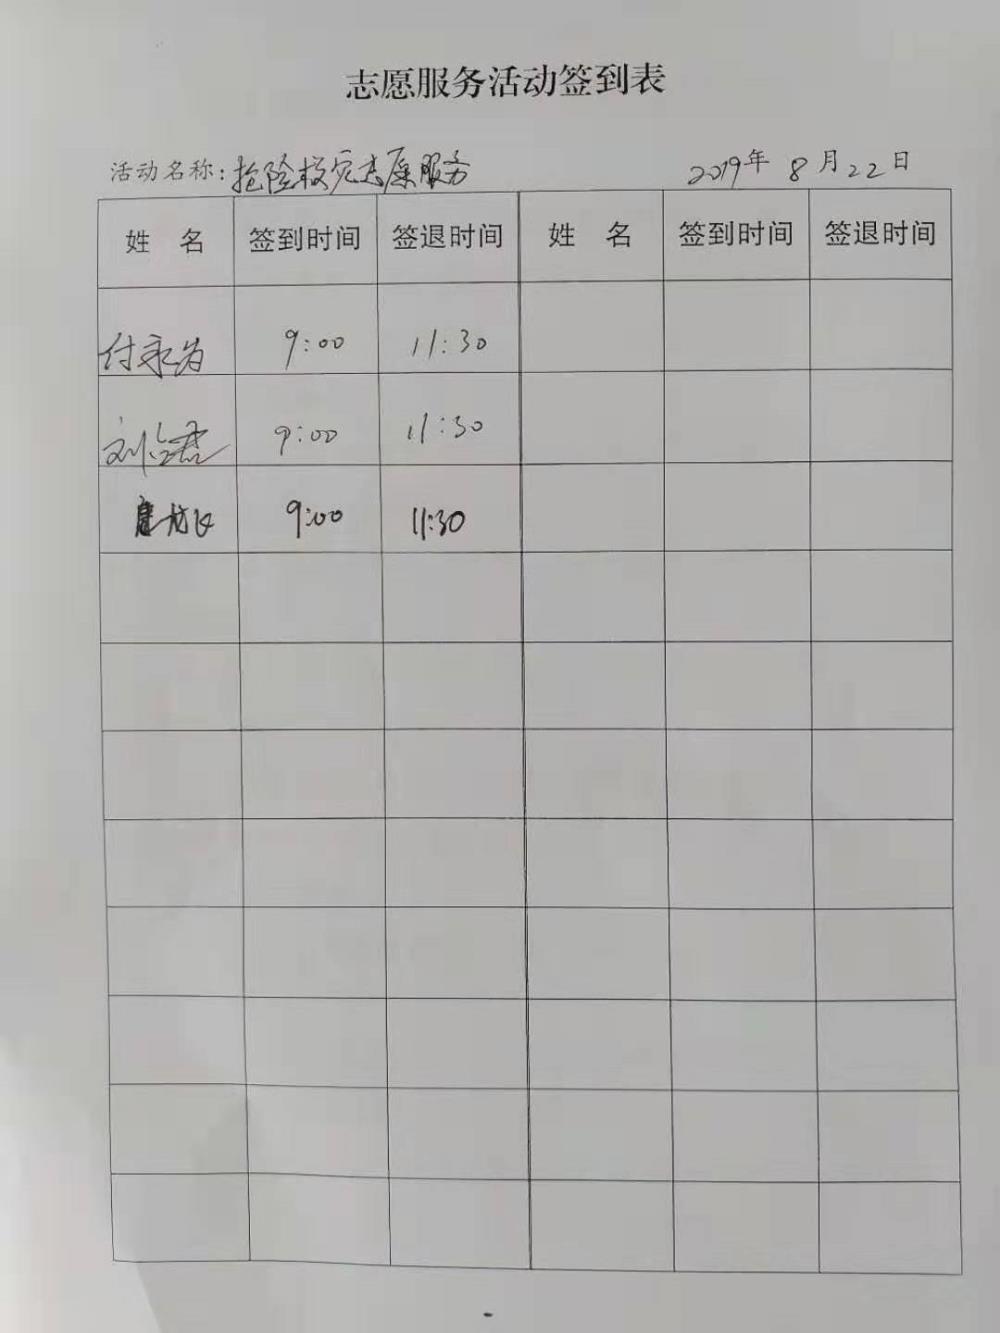 志愿服务活动签到表
活动名称:抢险救灾志愿服务 2019年8月22日
姓 名 签到时间 签退时间 姓 名 签到时间 签退时间
付永为 9:00 11:30
刘 君 9:00 11:30
9:00 11:30